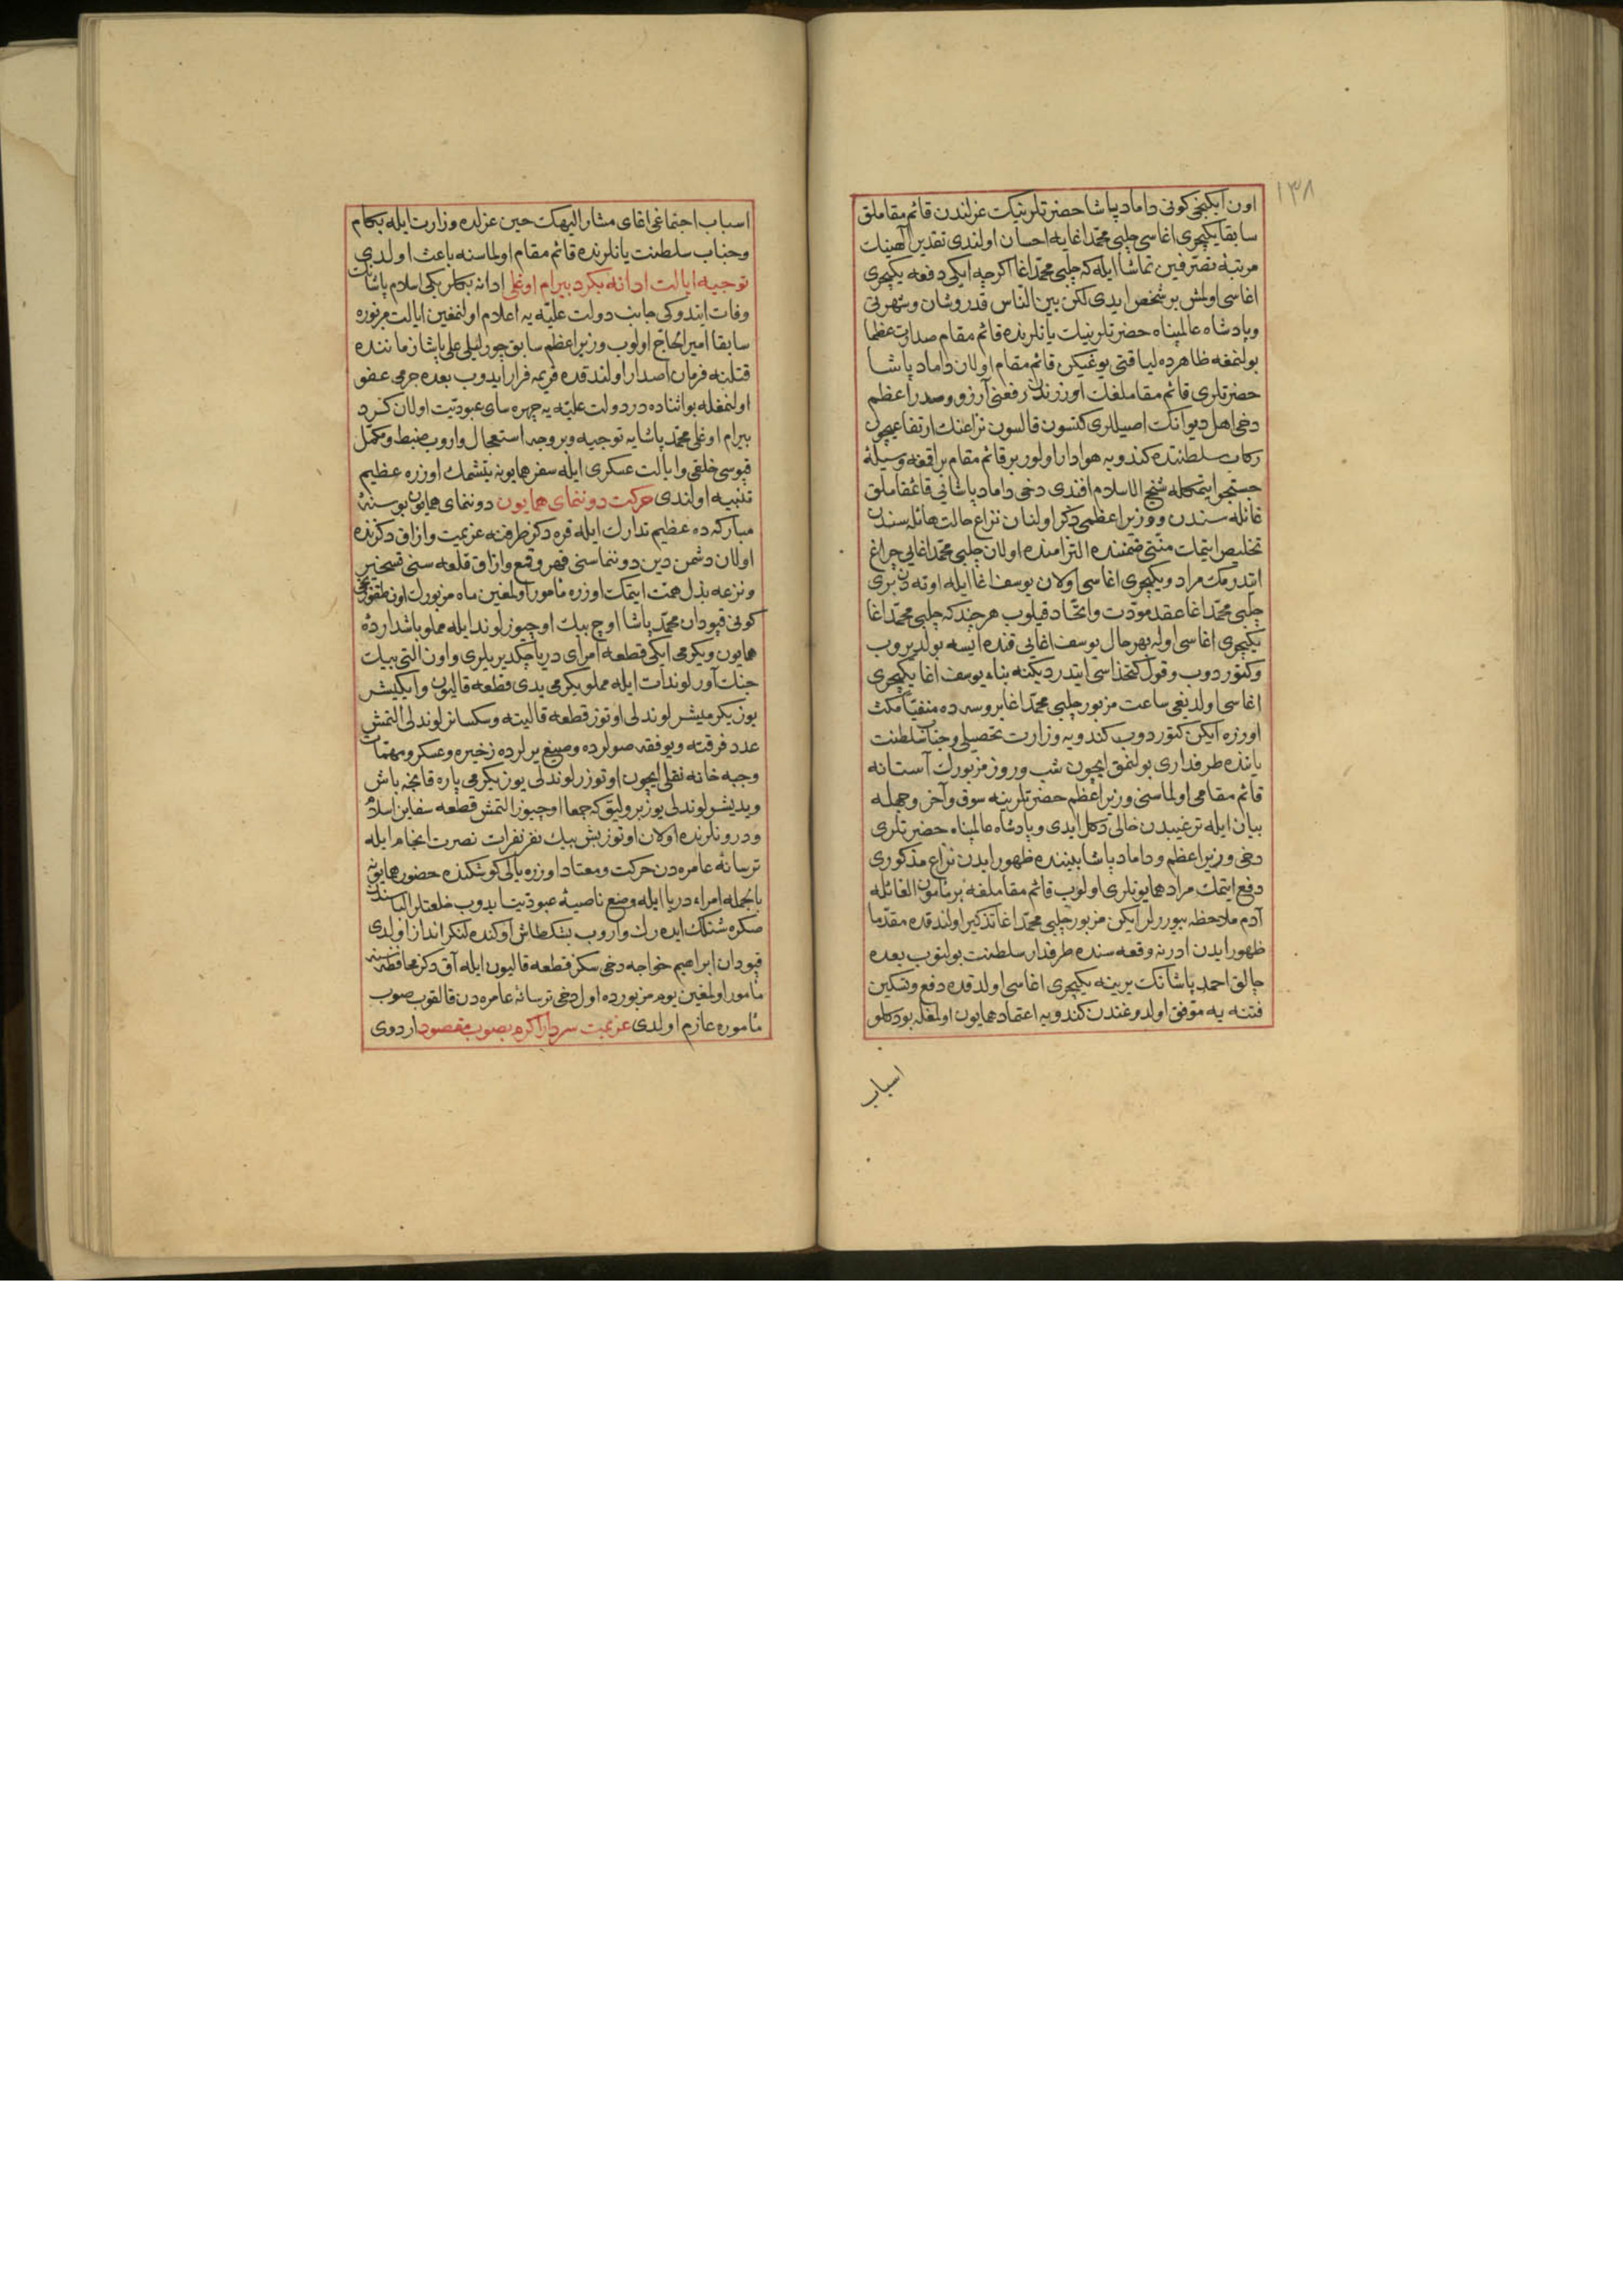 ١٣٨
اون ایکنجی کونی داماد پاشا حضرتلرینك عزلندن قائم مقاملق
سابقا یکیچری اغاسی چلبی محمد اغایه احسان اولندی تقدیر الهینك
مرتبهٔ تصرفین تماشا ایله که چلبی محمد اغا اکرچه ایکی دفعه یکیچری
اغاسی اولمش بر شخص ایدی لکن بین الناس قدر وشان وشهرتی
وپادشاه عالمپناه حضرتلرینك یانلرنده قائم مقام صدارت عظما
بولنمغه ظاهرده لیاقتی یوغیکن قائم مقام اولان داماد پاشا
حضرتلری قائم مقاملغك اوزرندن رفعنی آرزو وصدر اعظم
دخی اهل دیوانك اصیللری کتسون قالسون نزاعنك ارتفاعیچون
رکاب سلطنتده کندویه هوادار اولور بر قائم مقام براقمغه وسیله
جستجو ایتمکله شیخ الاسلام افندی دخی داماد پاشانی قائمقاملق
غائله سندن ووزیر اعظمی ذکر اولنان نزاع حالت هائله سندن
تخلیص ایتمك منتی ضمننده التزامنده اولان چلبی محمد اغایی چراغ
ایتدرمك مراد ویکیچری اغاسی اولان یوسف اغا ایله اوته دن بری
چلبی محمد اغا عقد مودت واتحاد قیلوب هر چند که چلبی محمد اغا
یکیچری اغاسی اوله بهر حال یوسف اغایی قنده ایسه بولدیروب
وکتوردوب وقول کتخداسی ایتدردیکنه بناء یوسف اغا یکیچری
اغاسی اولدیغی ساعت مزبور چلبی محمد اغا بروسه ده منفیا مکث
اوزره ایکن کتوردوب کندویه وزارت تحصیلی وجناب سلطنت
یاننده طرفداری بولنمق ایچون شب وروز مزبورك آستانه
قائم مقامی اولماسنی وزیر اعظم حضرتلرینه سوق وآخر وجمله
بیان ایله ترغیبدن خالی دکل ایدی وپادشاه عالمپناه حضرتلری
دخی وزیر اعظم وداماد پاشا بیننده ظهور ایدن نزاع مذکوری
دفع ایتمك مراد همایونلری اولوب قائم مقاملغه بر مأمون الغائله
آدم ملاحظه بیوررلر ایکن مزبور چلبی محمد اغا تذکیر اولندقده مقدما
ظهور ایدن ادرنه وقعه سنده طرفدار سلطنت بولنوب بعده
چالق احمد پاشانك یرینه یکیچری اغاسی اولدقده دفع وتسکین
فتنه یه موفق اولدوغندن کندویه اعتماد همایون اولمغله بو دکلو
اسباب
اسباب اجتماعی اغای مشار الیهك حین عزلده وزارت ایله بکام
وجناب سلطنت یانلرنده قائم مقام اولماسنه باعث اولدی
توجیه ایالت ادانه بکرد بیرام اوغلی ادانه بکلربکی اسلام پاشانك
وفات ایتدوکی جانب دولت علیه یه اعلام اولنمغین ایالت مزبوره
سابقا امیر الحاج اولوب وزیر اعظم سابق چورلیلی علی پاشا زماننده
قتلنه فرمان اصدار اولندقده قریمه فرار ایدوب بعده جرمی عفو
اولنمغله بو اثناده در دولت علیه یه چهره سای عبودیت اولان کرد
بیرام اوغلی محمد پاشایه توجیه وبر وجه استعجال واروب ضبط ومکمل
قپوسی خلقی وایالت عسکری ایله سفر همایونه یتشمك اوزره عظیم
تنبیه اولندی حرکت دوننمای همایون دوننمای همایون بو سنهٔ
مبارکه ده عظیم تدارك ایله قره دکز طرفنه عزیمت وازاق دکزنده
اولان دشمن دین دوننماسنی قهر وقمع وازاق قلعه سنی تسخیر
ونزعه بذل همت ایتمك اوزره مأمور اولمغین ماه مزبورك اون طقوزنجی
کونی قپودان محمد پاشا اوچ بیك اوچیوز لوند ایله مملو باشدارده
همایون ویکرمی ایکی قطعه امرای دریا چکدیریلری واون التی بیك
جنك آور لوندات ایله مملو یکرمی یدی قطعه قالیون وایکیشر
یوز یکرمیشر لوندلی اوتوز قطعه قالیته وسکسانر لوندلی التمش
عدد فرقته ویوفقه صولرده وصیغ یرلرده زخیره وعسکر ومهمات
وجبه خانه نقلی ایچون اوتوزر لوندلی یوز یکرمی پاره قانجه باش
ویدیشر لوندلی یوز پرولیق که جمعا اوچیوز التمش قطعه سفاین اسلام
ودرونلرنده اولان اوتوز بش بیك نفر نفرات نصرت انجام ایله
ترسانهٔ عامره دن حرکت ومعتاد اوزره یالی کوشکنده حضور همایونه
بالجمله امراء دریا ایله وضع ناصیهٔ عبودیت ایدوب خلعتلر الباسندن
صکره شنلك ایده رك واروب بشکطاش اوکنده لنکر انداز اولدی
قپودان ابراهیم خواجه دخی سکز قطعه قالیون ایله آق دکز محافظه سنه
مأمور اولمغین یوم مزبورده اول دخی ترسانهٔ عامره دن قالقوب صوب
مأموره عازم اولدی عزیمت سردار اکرم بصوب مقصود اردوی